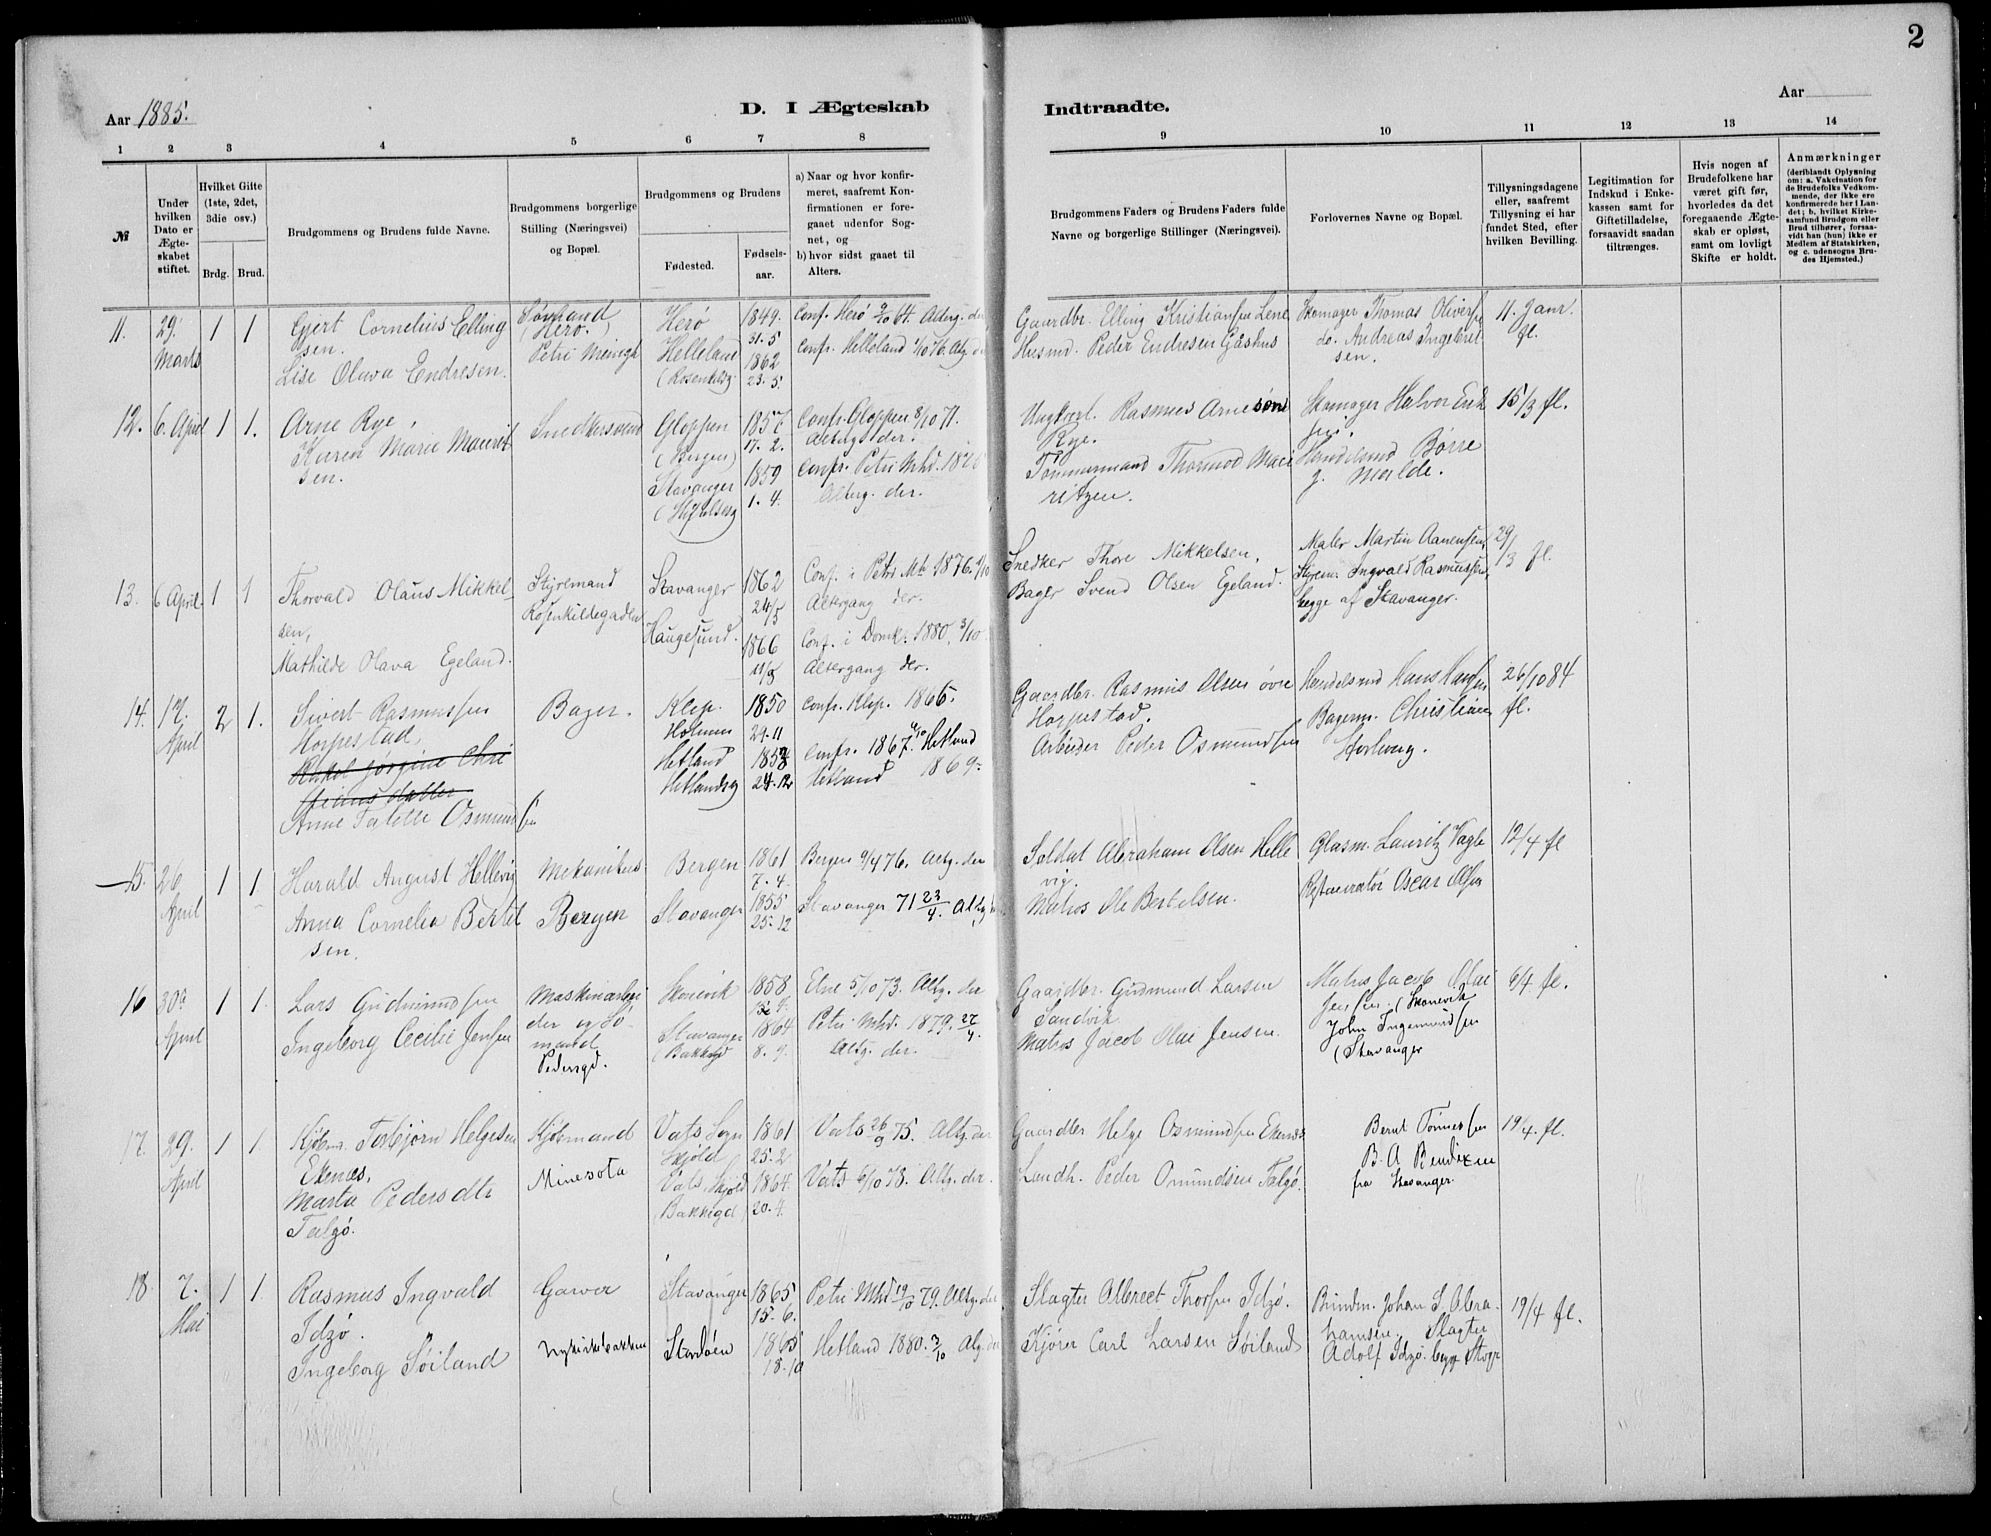 2
Aar 1885.
D. I Ægteskab
Indtraadte.
Aar
1 2 3 4 5 6 7 8 9 10 11 12 13 14
№
Under hvilken Dato er Ægteskabet stiftet.
Hvilket Gifte (1ste, 2det, 3die osv.)
Brdg. Brud.
Brudgommens og Brudens fulde Navne.
Brudgommens borgerlige Stilling (Næringsvei) og Bopæl.
Brudgommens og Brudens
Fødested.
Fødselsaar.
a) Naar og hvor konfirmeret, saafremt Konfirmationen er foregaaet udenfor Sognet, og
b) hvor sidst gaaet til Alters.
Brudgommens Faders og Brudens Faders fulde Navne og borgerlige Stillinger (Næringsvei).
Forlovernes Navne og Bopæl.
Tillysningsdagene eller, saafremt Tillysning ei har fundet Sted, efter hvilken Bevilling.
Legitimation for Indskud i Enkekassen samt for Giftetilladelse, forsaavidt saadan tiltrænges.
Hvis nogen af Brudefolkene har været gift før, hvorledes da det foregaaende Ægteskab er opløst, samt om lovligt Skifte er holdt.
Anmærkninger (deriblandt Oplysning om: a. Vakcination for de Brudefolks Vedkommende, der ikke ere konfirmerede her i Landet; b. hvilket Kirkesamfund Brudgom eller Brud tilhører, forsaavidt han (hun) ikke er Medlem af Statskirken, og c. udensogns Brudes Hjemsted.)
11. 29. Marts 1 1
Gjert Cornelius Elling
sen.
Lise Olava Endresen.
(Herø.)
Petri
Herø
Helleland
(Rosenkildg.
1849.
31.5
1862
23.5.
Conf. Herø 2/10 64. Alterg. der
Confr. Helleland 1/10 76. Altg. der
Gaardbr. Elling Kristiansen Lene
Husmd. Peder Endresen Gåshus
Skomager Thomas Oliversen
do. Andreas Ingebret
sen.
11. Janr.
fl.
12. 6. April 1 1.
Arne Rye,
Karen Marie Maurit
sen.
Snedkersvend
Gloppen
(Bergen)
Stavanger
1857
17. 2.
1859
1. 4.
Confr. Gloppen 8/10 71.
Alterg. der.
Confr. Petri Mhd.
Alterg. der.
Ungkarl. Rasmus Arnesøn
Rye.
Tømmermand Thormod Mau
ritzen.
Skomager Halvor Erik
sen.
Handelsmd Børre
J. Malde.
15/3 fl.
13. 6 April. 1 1
Thorvald Olaus Mikkel
sen,
Mathilde Olava Egeland.
Styrmand
Rosenkildegaden
Stavanger
Haugesund.
1862
24/5
1866
11/8
Conf. i Petri Mh 1876. 1/10
Altergang der.
Conf. i Domk. 1880, 3/10
Altergang der.
Snedker Thore Mikkelsen,
Bager Svend Olsen Egeland.
Maler Martin Aanensen,
Styrem. Ingvald Rasmussen,
begge af Stavanger.
29/3 fl.
14. 12. April 2 1.
Sivert Rasmussen
Horpestad,
Rakel Jorgine Chri
stiansdatter
Anne Talette Osmundsen
Bager.
Klep.
Holmen
Hetland
Hetlandsg
1850
29.11
1852
24.12
Confr. Klep. 1865.
Confr. 1867. Hetland
Hetland 1869.
Gaardbr. Rasmus Olsen øvre
Horpestad.
Arbeider Peder Osmundsen
Handelsmd Hans Hansen
Bagerm. Christian
Storhaug.
26/10 84
fl.
15. 26 April 1 1.
Harald August Hellevig
Anna Cornelia Bertel
sen.
Mekanikus
Bergen
Bergen
Stavanger
1861
7. 4.
1855
25. 12
Bergen 9/4 76. Altg. der
Stavanger 71 23/4. Altg. der
Soldat Abraham Olsen Helle
vig.
Matros Ole Bertelsen.
Glasm. Lauritz Vagle
Restauratør Oscar Olsen
12/4 fl
16 30te April 1 1.
Lars Gudmundsen
Ingeborg Cecilie Jensen
Maskinarbei
der og Sø-
mand
Pedersgd.
Skonevik
Stavanger
(Bakkegd
1858
1864
8. 9.
Etne 5/10 73. Altg. der
Petri Mhd. 1879. 27/4.
Altg. der.
Gaardbr. Gudmund Larsen
Sandvik
Matros Jacob Olai Jensen.
Matros Jacob Olai
Jensen. (Skonevik
John Ingemundsen
(Stavanger
6/4 fl.
17. 29. April 1 1.
Kjøbm. Torbjørn Helgesen
Eknæs.
Marta Pedersdtr
Talgø.
Kjøbmand
Minesota
Vats Sogn
Skjold
Vats, Skjold
(Bakkegd)
1861
25. 2
1864.
20. 4.
Vats 26/9 75. Altg. der
Vats 6/10 78. Altg. der.
Gaardbr Helge Osmundsen Eknæs
Landh. Peder Omundsen Talgø.
Bernt Tønnessen
B. A Bendixen
fra Stavanger.
19/4. fl.
18. 7. Mai 1 1.
Rasmus Ingvald
Idzø.
Ingeborg Søiland
Garver
Nykirkebakken
Stavanger
Stordøen
1865
15. 6.
1865
18.10
Petri Mhd 19/10 79. Altg. der
Hetland 1880. 3/10 Altg. der
Slagter Albrect Thorsen Idzø.
Kjører Carl Larsen Søiland
Brændm. Johan S. Abra
hamsen. Slagter
Adolf Idzø. begge Stvgr
19/4 fl.